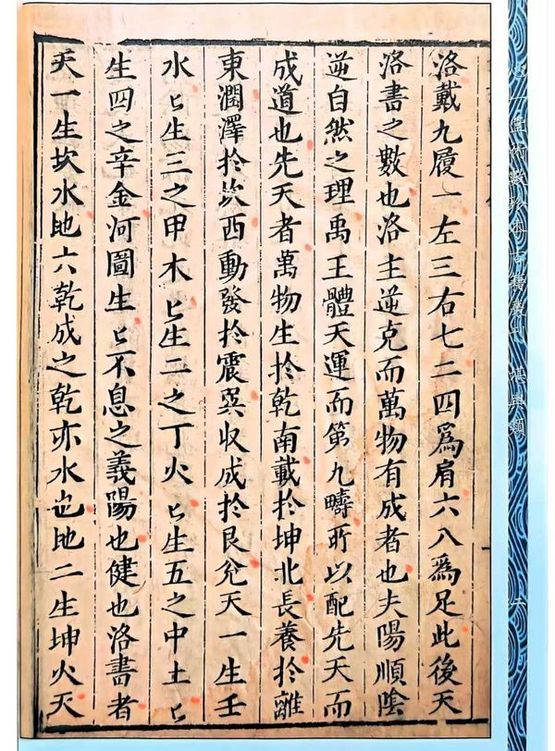 洛戴九履一左三右七二四爲肩六八爲足此後天
洛書之數也洛主逆克而萬物有成者也夫陽順陰
逆自然之理禹王體天運而第九疇所以配先天而
成道也先天者萬物生扵乾南載扵坤北長養扵離
東潤澤扵坎西動發扵震巽收成扵艮兊天一生壬
水匕生三之甲木匕生二之丁火匕生五之中土匕
生四之辛金河圖生匕不息之義陽也健也洛書者
天一生坎水地六乾成之乾亦水也地二生坤火天